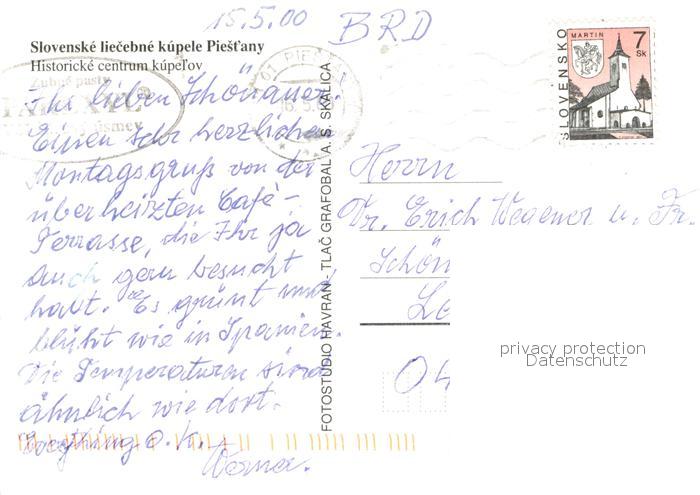 15.5.00 BRD
Slovenské liečebné kúpele Piešťany
Historické centrum kúpeľov
Ihr lieben Schönauer!
Einen sehr herzlichen
Montagsgruß von der
überheizten Café-
Terrasse, die Ihr ja
auch gern besucht
habt. Es grünt und
blüht wie in Spanien.
Die Temperaturen sind
ähnlich wie dort.
Everything o.k.
Werner.
FOTOSTUDIO HAVRAN - TLAČ GRAFOBAL A. S. SKALICA
Zubné pasty
SLOVENSKO
MARTIN
7
Sk
Herrn
Dr. Erich Wegener u. Fr.
Schön
Le
04
privacy protection
Datenschutz